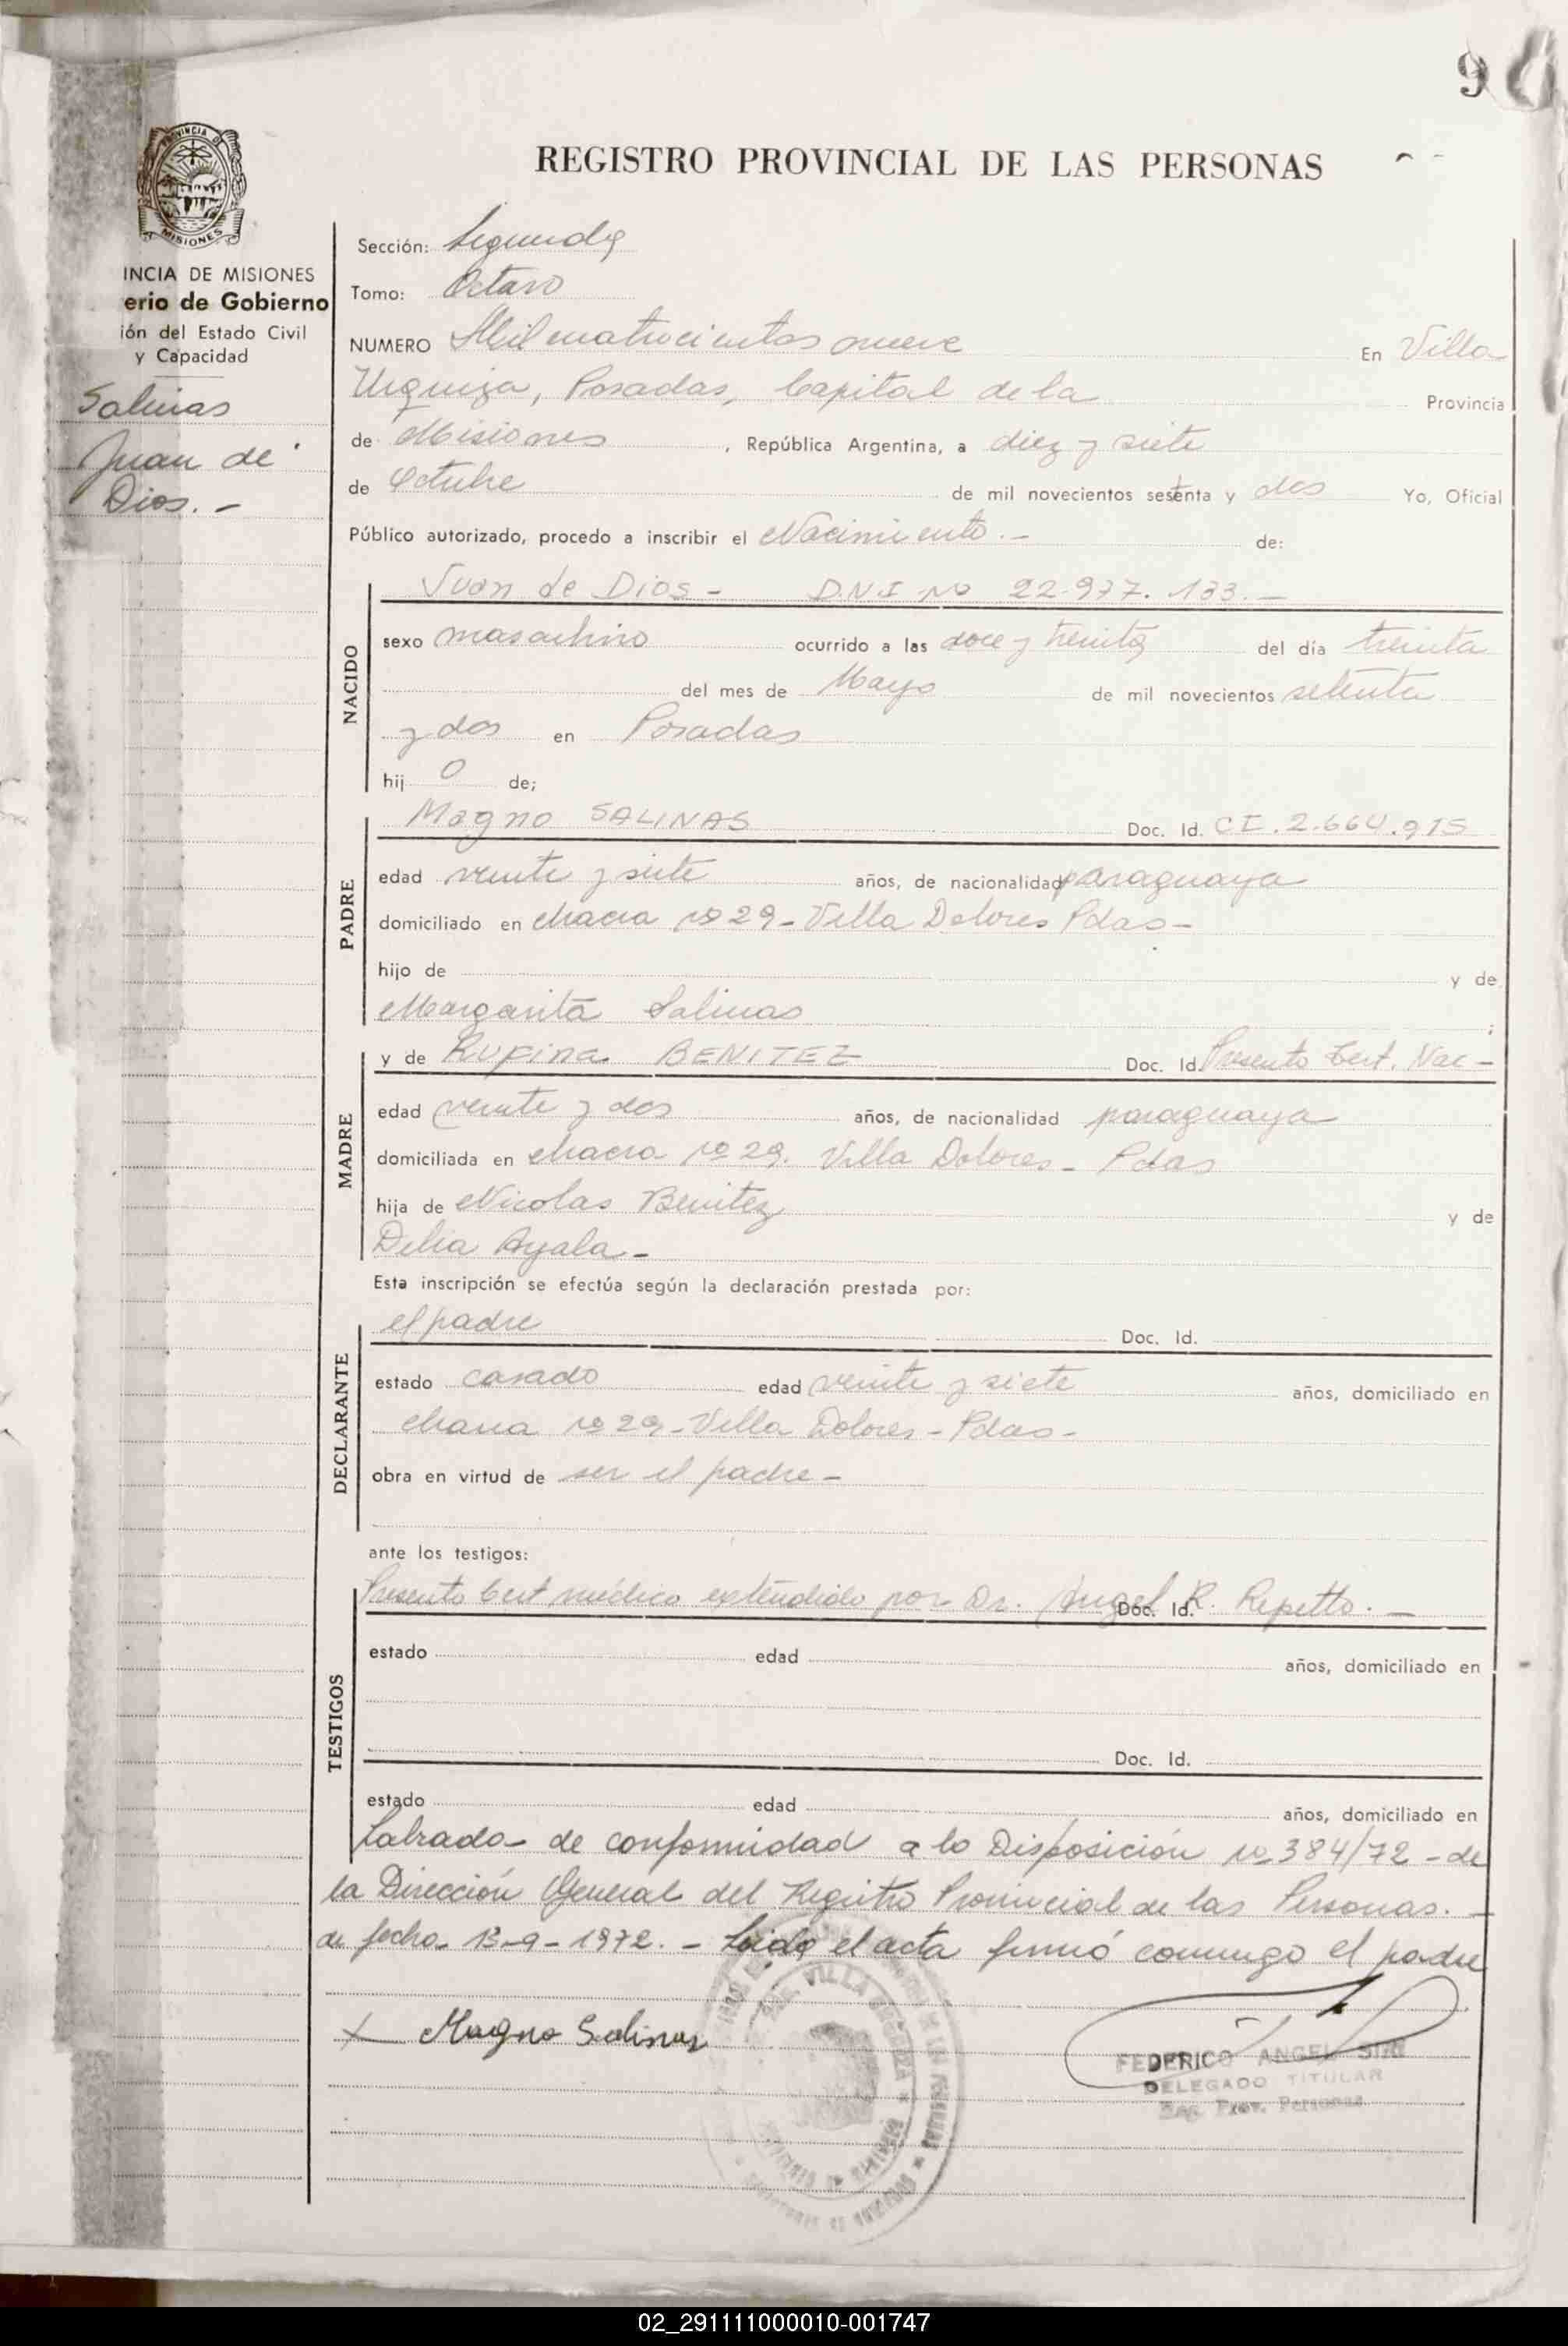 9
REGISTRO PROVINCIAL DE LAS PERSONAS
PROVINCIA D
MISIONES
INCIA DE MISIONES
erio de Gobierno
ión del Estado Civil
y Capacidad
Salinas
Juan de
Dios. -
Sección: Segunda
Tomo: Octavo
NUMERO Mil cuatrocientos nueve En Villa
Urquiza, Posadas, Capital de la Provincia
de Misiones, República Argentina, a diez y siete
de Octubre de mil novecientos setenta y dos Yo, Oficial
Público autorizado, procedo a inscribir el Nacimiento. - de:
NACIDO
Juan de Dios - D.N.I Nº 22.937.133. -
sexo masculino ocurrido a las doce y treinta del día treinta
del mes de Mayo de mil novecientos setenta
y dos en Posadas
hij o de;
PADRE
Magno SALINAS Doc. Id. CI. 2.664.915
edad veinte y siete años, de nacionalidad paraguaya
domiciliado en chacra nº 29 - Villa Dolores Pdas -
hijo de y de
Margarita Salinas ;
MADRE
y de Rufina BENITEZ Doc. Id. Presento Cert. Nac -
edad veinte y dos años, de nacionalidad paraguaya
domiciliada en chacra nº 29. Villa Dolores - Pdas
hija de Nicolas Benitez y de
Delia Ayala -
Esta inscripción se efectúa según la declaración prestada por:
DECLARANTE
el padre Doc. Id.
estado casado edad veinte y siete años, domiciliado en
chacra nº 29 - Villa Dolores - Pdas -
obra en virtud de ser el padre -
ante los testigos:
TESTIGOS
Presento Cert médico extendido por Dr. Angel R. Repetto. - Doc. Id.
estado edad años, domiciliado en
Doc. Id.
estado edad años, domiciliado en
Labrada de conformidad a lo Disposición nº 384/72 - de
la Dirección General del Registro Provincial de las Personas. -
de fecha 13-9-1972. - Leida el acta firmó conmigo el padre
X Magno Salinas
VILLA URQUIZA
FEDERICO ANGEL
DELEGADO TITULAR
Reg. Prov. Personas
02_291111000010-001747